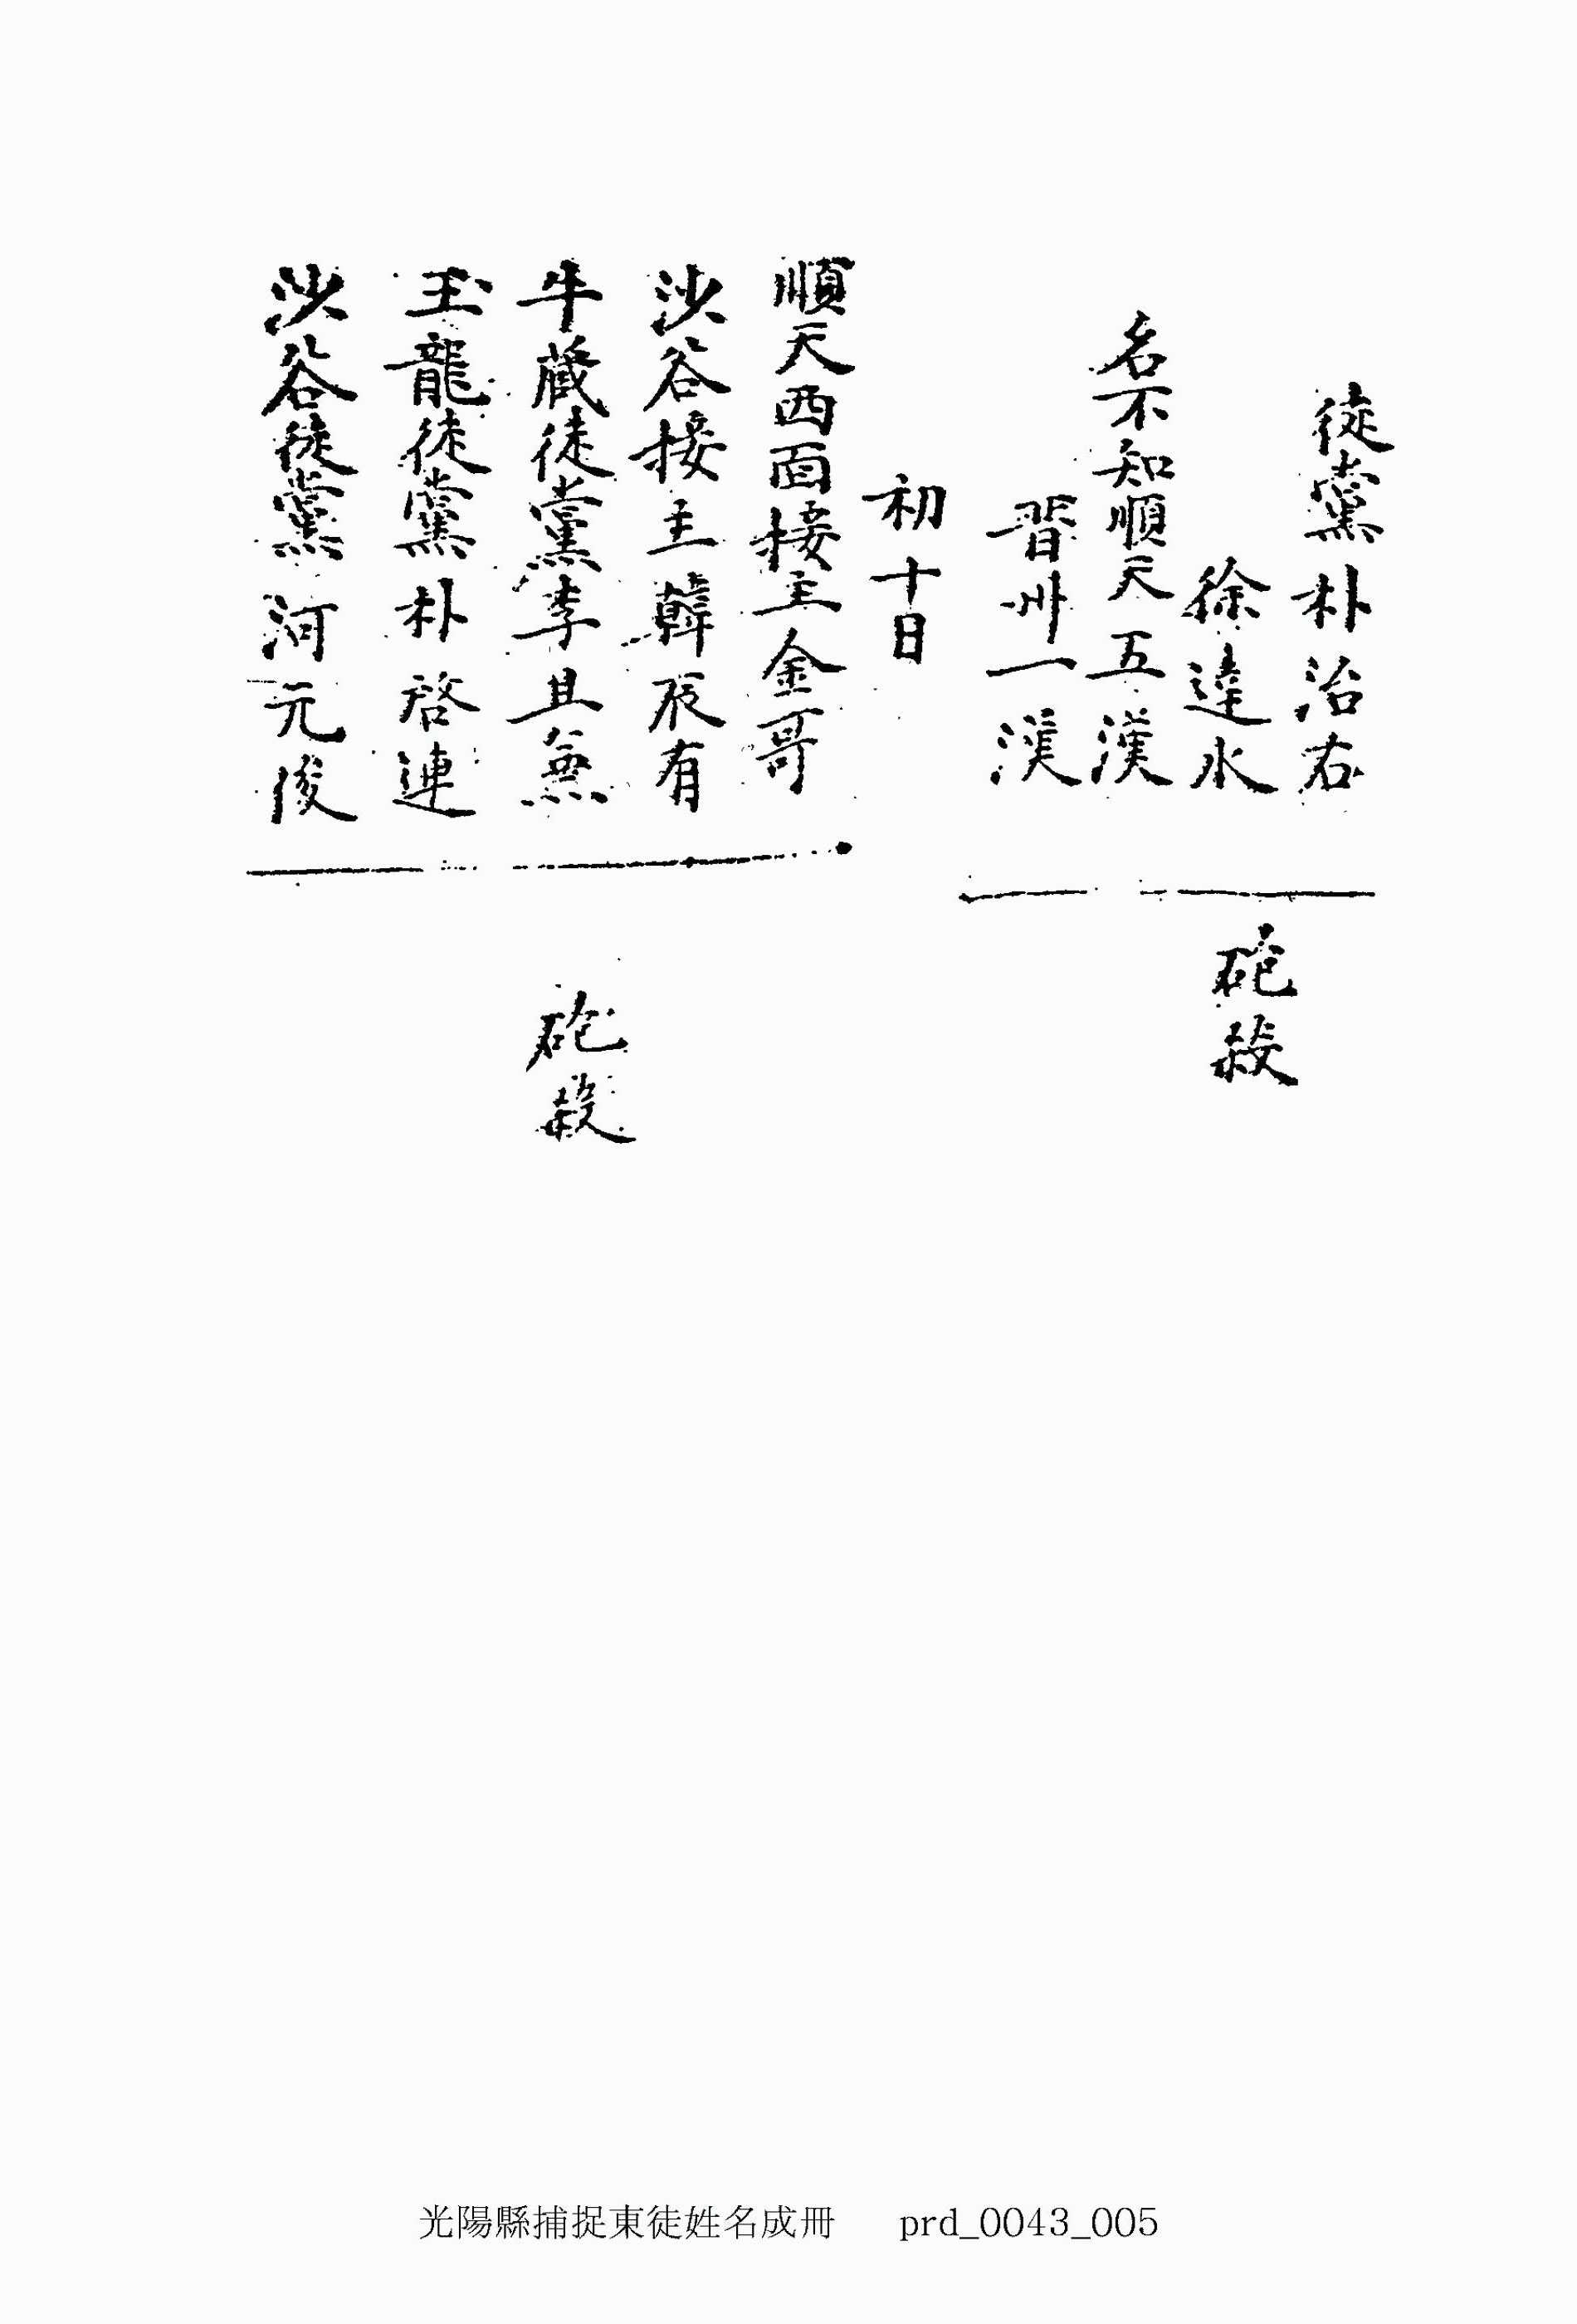 徒黨朴治右
徐達水
名不知順天五漢
晋州一漢
砲殺
初十日
順天西面接主金哥
沙谷接主韓辰有
牛藏徒黨李且無
玉龍徒黨朴啓連
沙谷徒黨河元俊
砲殺
光陽縣捕捉東徒姓名成冊 prd_0043_005